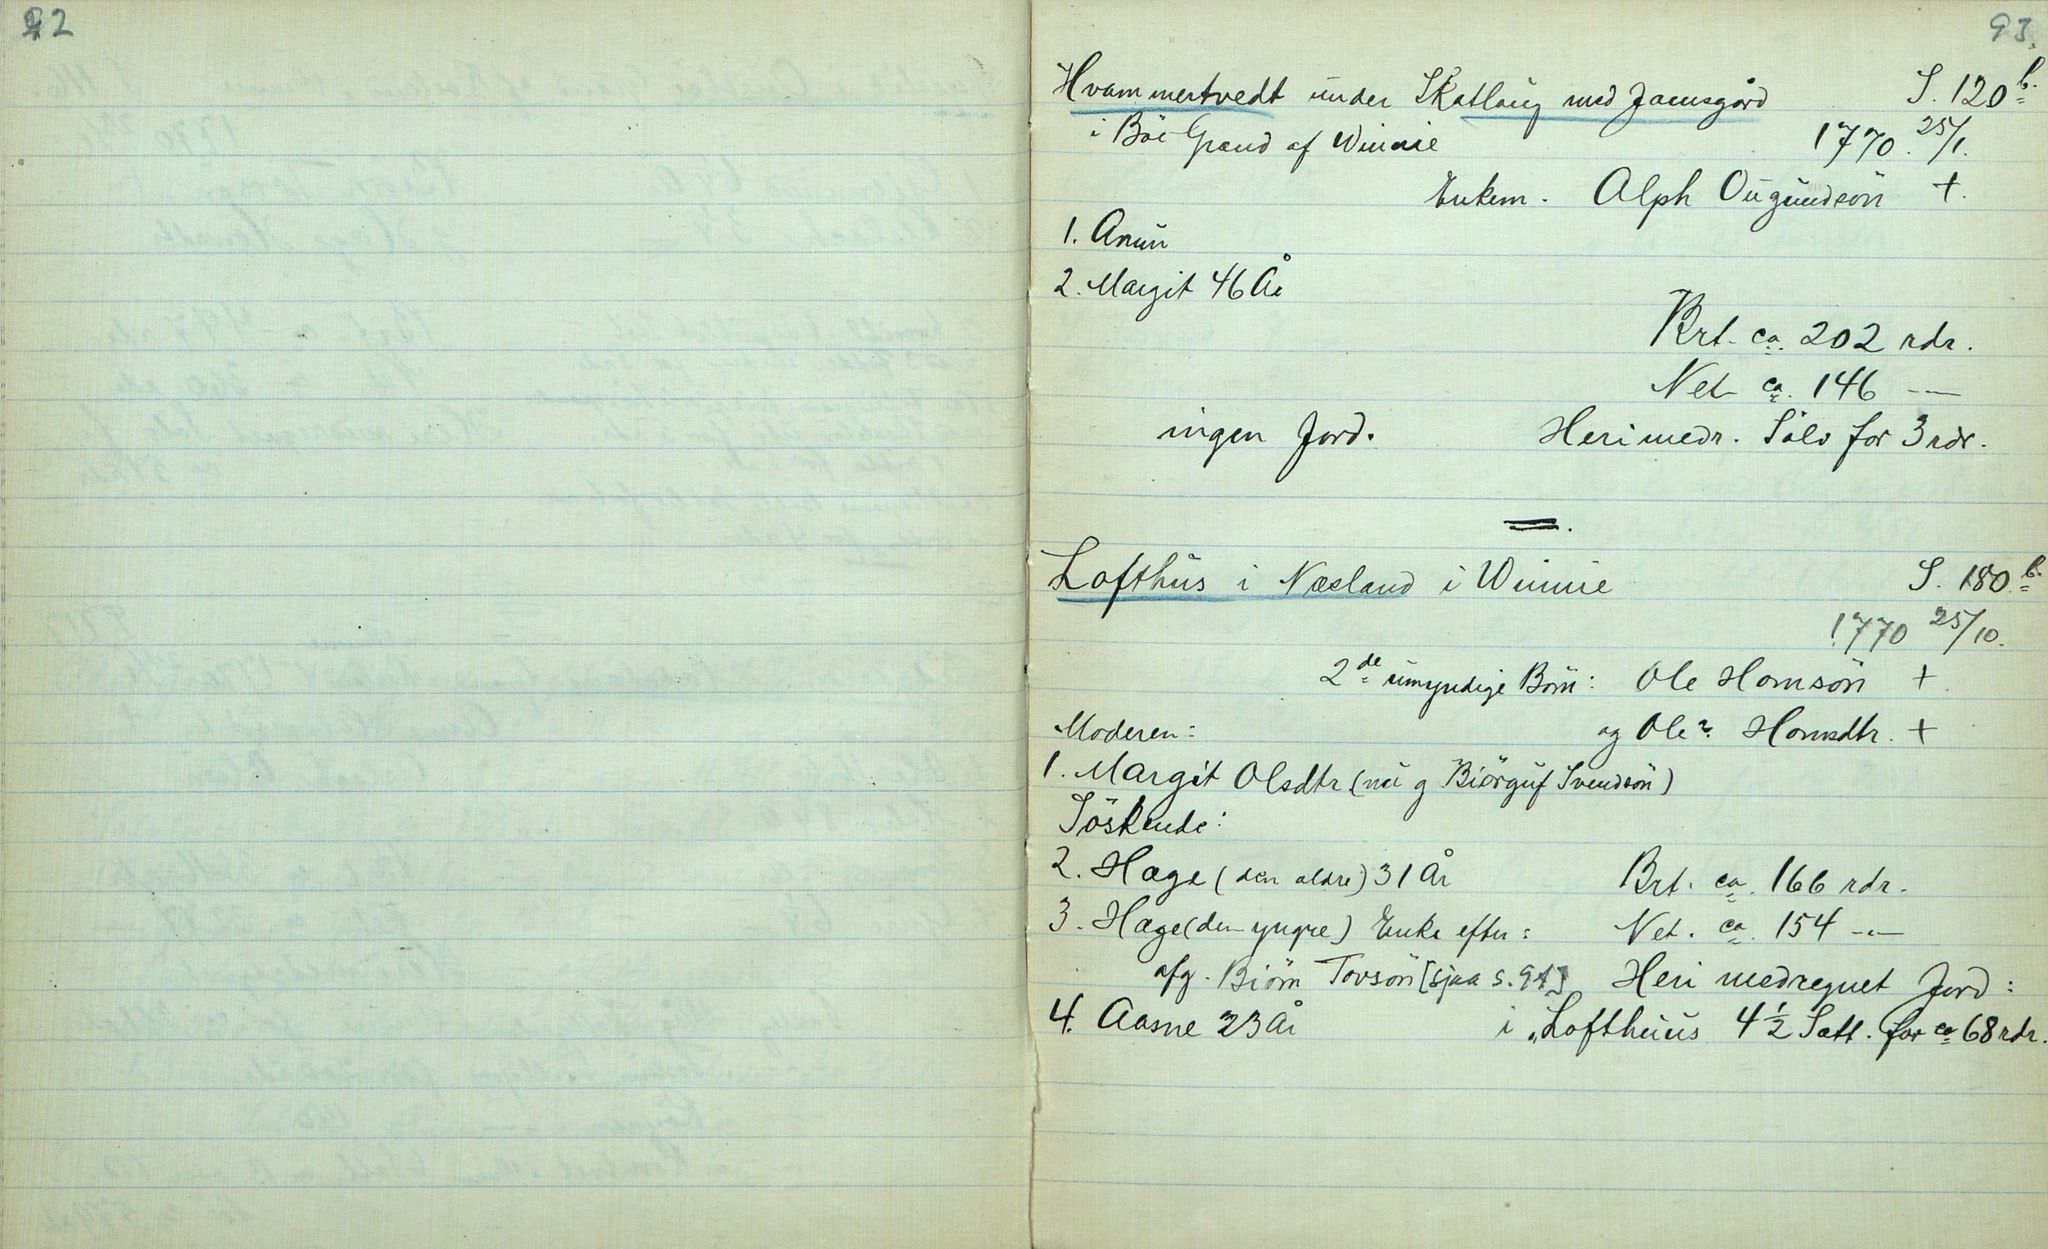 92
93.
Hvammertvedt under Skatlaug med Jamsgård S. 120 b.
i Böe Grænd af Winnie 1770. 25/1.
Enkem. Alph Ougundsön +.
1. Anun
2. Margit 46 År
Brt. ca. 202 rdr.
Net ca. 146 —"—
ingen Jord. Heri medr. Sölv for 3 rdr.
Lofthus i Næsland i Winnie S. 180 b.
1770 25/10.
2de umyndige Börn: Ole Homsön +.
Moderen: og Ole? Homsdtr. +
1. Margit Olsdtr (nu g Biörguf Svendsön)
Söskende:
2. Hæge (den ældre) 31 År Brt. ca. 166 rdr.
3. Hæge (den yngre) Enke efter: Net. ca. 154 —"—
afg. Biörn Tovsön [sjaa s. 94] Heri medregnet Jord:
4. Aasne 23 År i „Lofthuus 4 1/2 Sætt. for ca 68 rdr.